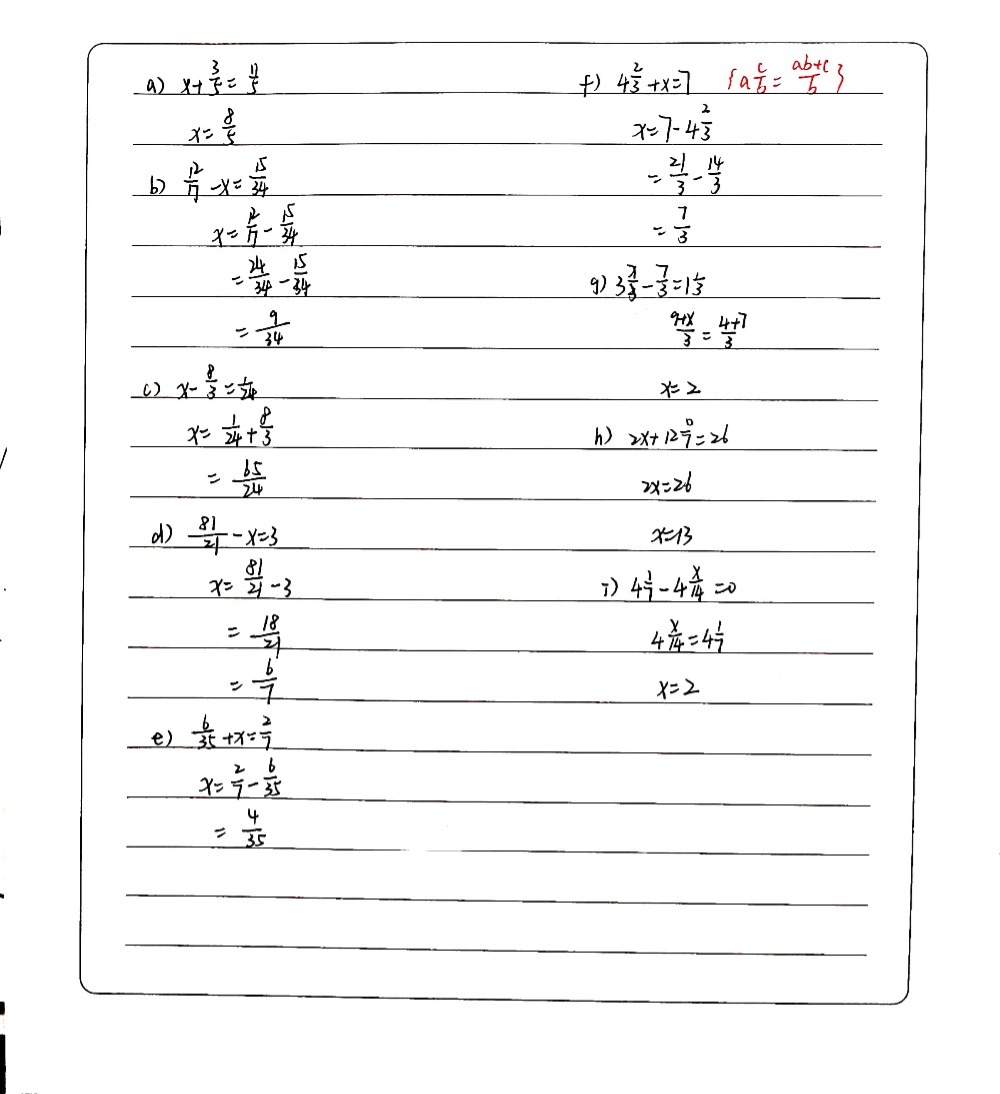 a) x+3/5=11/5
x=8/5
b) 12/17-x=15/34
x=12/17-15/34
=24/34-15/34
=9/34
c) x-8/3=1/24
x=1/24+8/3
=65/24
d) 81/21-x=3
x=81/21-3
=18/21
=6/7
e) 6/35+x=2/7
x=2/7-6/35
=4/35
f) 4 2/3+x=7 {a c/b=ab+c/b}
x=7-4 2/3
=21/3-14/3
=7/3
g) 3 x/3-7/3=1 1/3
9+x/3=4+7/3
x=2
h) 2x+12 0/7=26
2x=26
x=13
i) 4 1/7-4 x/14=0
4 x/14=4 1/7
x=2